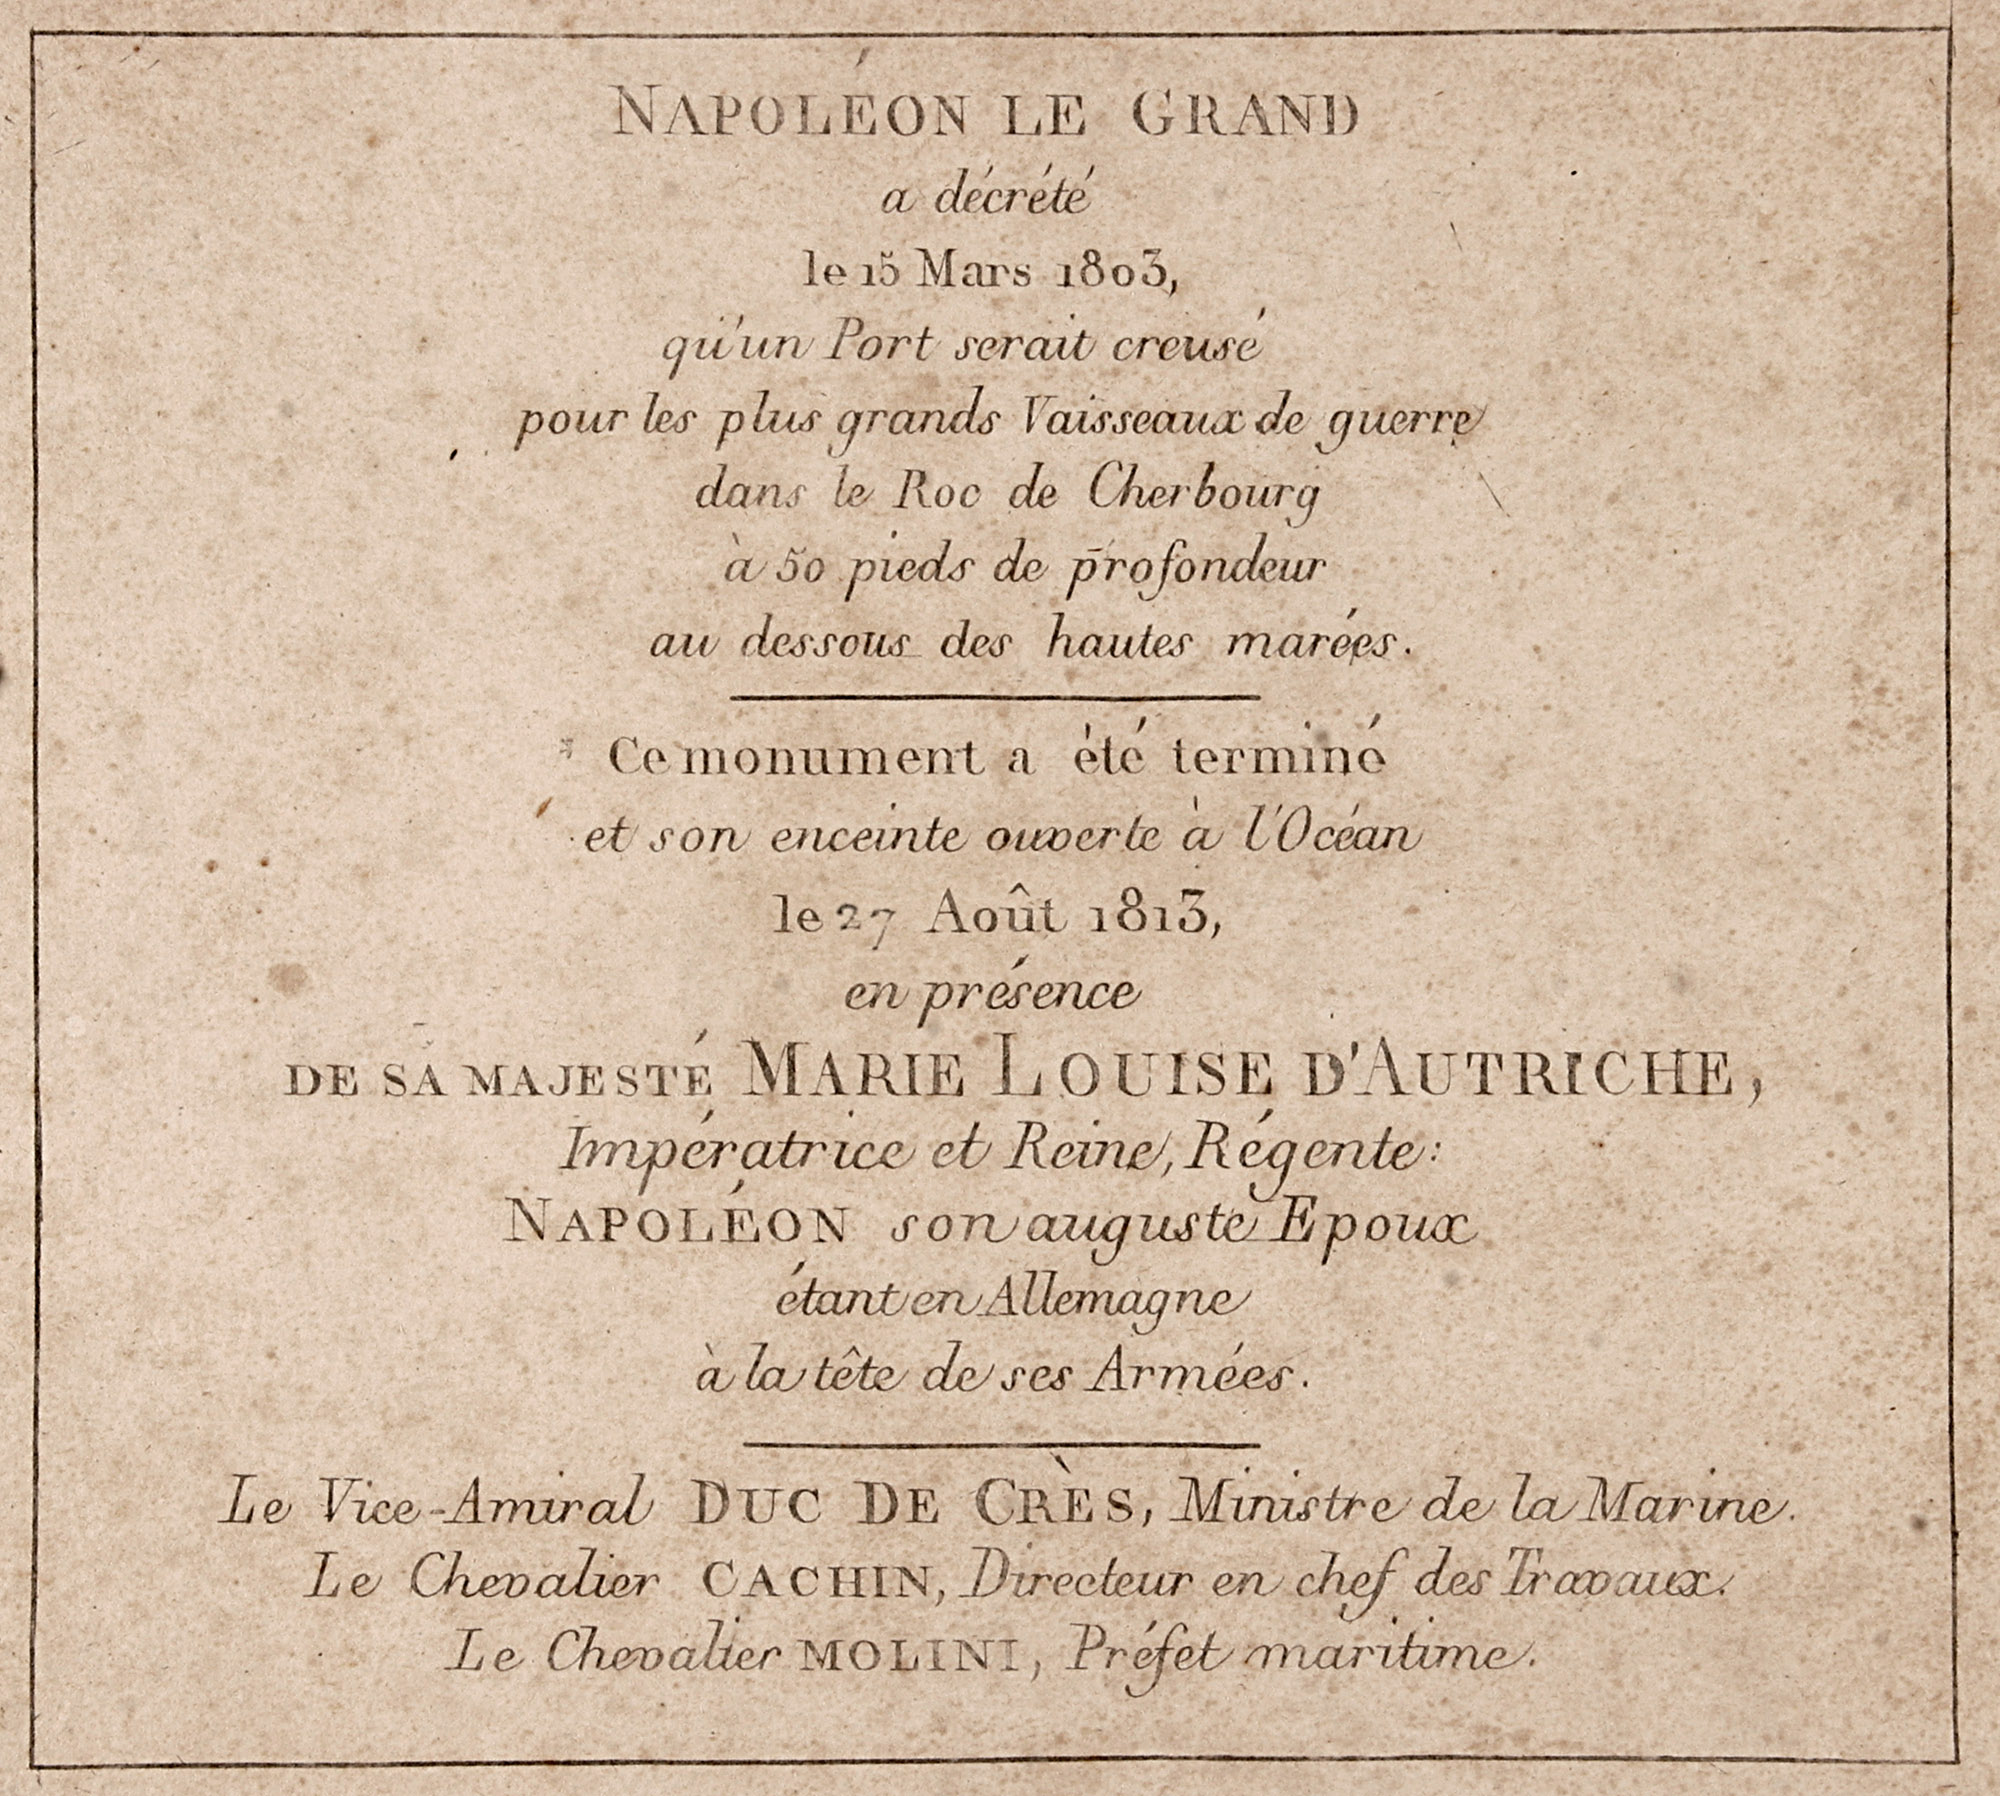 NAPOLÉON LE GRAND
a décrété
le 15 Mars 1803,
qu'un Port serait creusé
pour les plus grands Vaisseaux de guerre
dans le Roc de Cherbourg
à 50 pieds de profondeur
au dessous des hautes marées.
Ce monument a été terminé
et son enceinte ouverte à l'Océan
le 27 Août 1813,
en présence
DE SA MAJESTÉ MARIE LOUISE D'AUTRICHE,
Impératrice et Reine, Régente:
NAPOLÉON son auguste Epoux
étant en Allemagne
à la tête de ses Armées.
Le Vice-Amiral DUC DE CRÈS, Ministre de la Marine.
Le Chevalier CACHIN, Directeur en chef des Travaux.
Le Chevalier MOLINI, Préfet maritime.